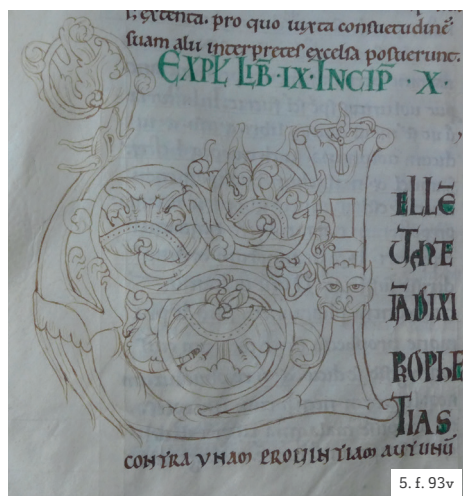 extenta. pro quo iuxta consuetudinē
suam alii interpretes excelsa posuerunt.
EXPL̄ LIB̄·IX·INCIP̄·X·
ELLĒ
UT ANTE
IĀ DIXI
PROPHE
TIAS
CONTRA UNAM PROUINTIAM AUT UNŪ
5. f. 93v